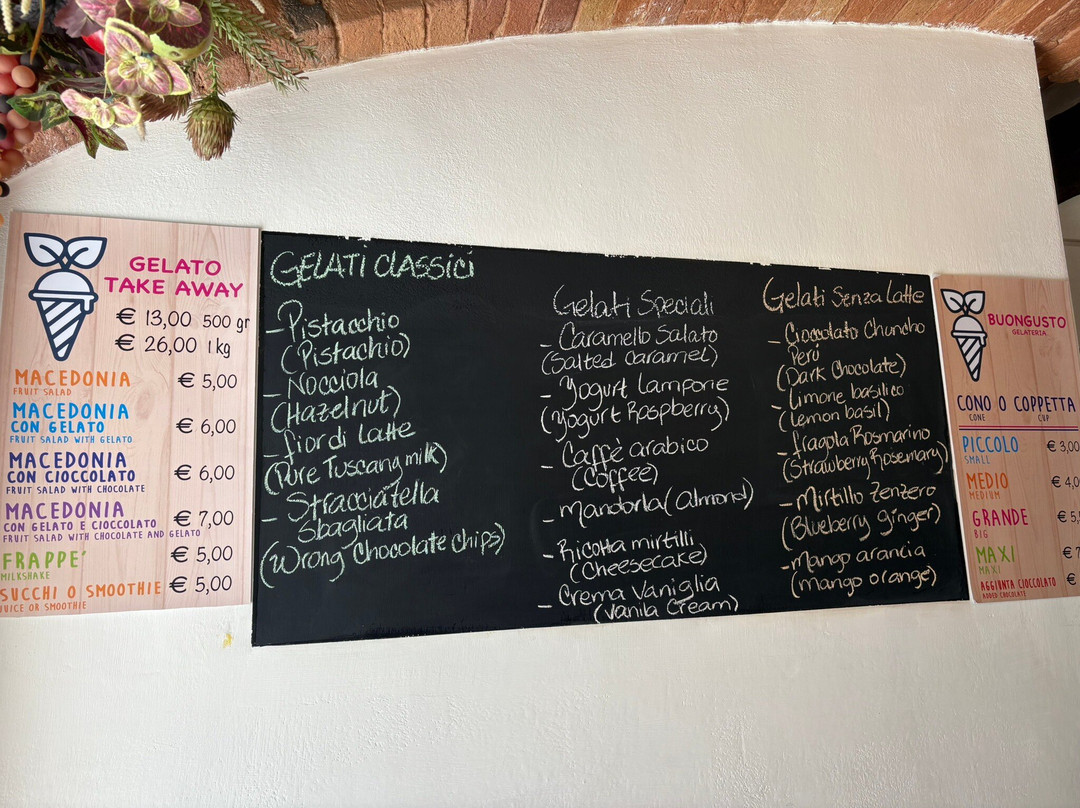 GELATO
TAKE AWAY
€ 13,00 500 gr
€ 26,00 1 kg
MACEDONIA € 5,00
FRUIT SALAD
MACEDONIA
CON GELATO € 6,00
FRUIT SALAD WITH GELATO
MACEDONIA
CON CIOCCOLATO € 6,00
FRUIT SALAD WITH CHOCOLATE
MACEDONIA
CON GELATO E CIOCCOLATO € 7,00
FRUIT SALAD WITH CHOCOLATE AND GELATO
FRAPPE' € 5,00
MILKSHAKE
SUCCHI O SMOOTHIE € 5,00
JUICE OR SMOOTHIE
GELATI CLASSICI
- Pistacchio
(Pistachio)
- Nocciola
(Hazelnut)
- fior di Latte
(Pure Tuscany milk)
- Stracciatella
Sbagliata
(Wrong Chocolate chips)
Gelati Speciali
- Caramello Salato
(Salted Caramel)
- Yogurt lampone
(Yogurt Raspberry)
- Caffè arabico
(Coffee)
- Mandorla (Almond)
- Ricotta mirtilli
(Cheesecake)
- Crema Vaniglia
(Vanila Cream)
Gelati Senza Latte
- Cioccolato Chuncho
Perù
(Dark Chocolate)
- limone basilico
(lemon basil)
- fragola Rosmarino
(Strawberry Rosemary)
- Mirtillo Zenzero
(Blueberry ginger)
- Mango arancia
(mango orange)
BUONGUSTO
GELATERIA
CONO O COPPETTA
CONE CUP
PICCOLO € 3,00
SMALL
MEDIO € 4,0
MEDIUM
GRANDE € 5,
BIG
MAXI €
MAXI
AGGIUNTA CIOCCOLATO €
ADDED CHOCOLATE